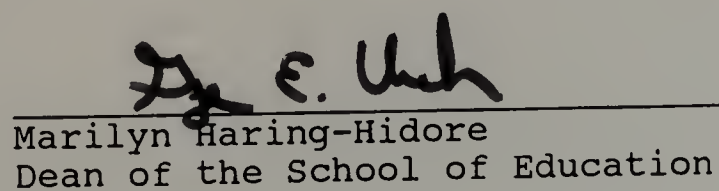 E.
Marilyn Haring-Hidore
Dean of the School of Education